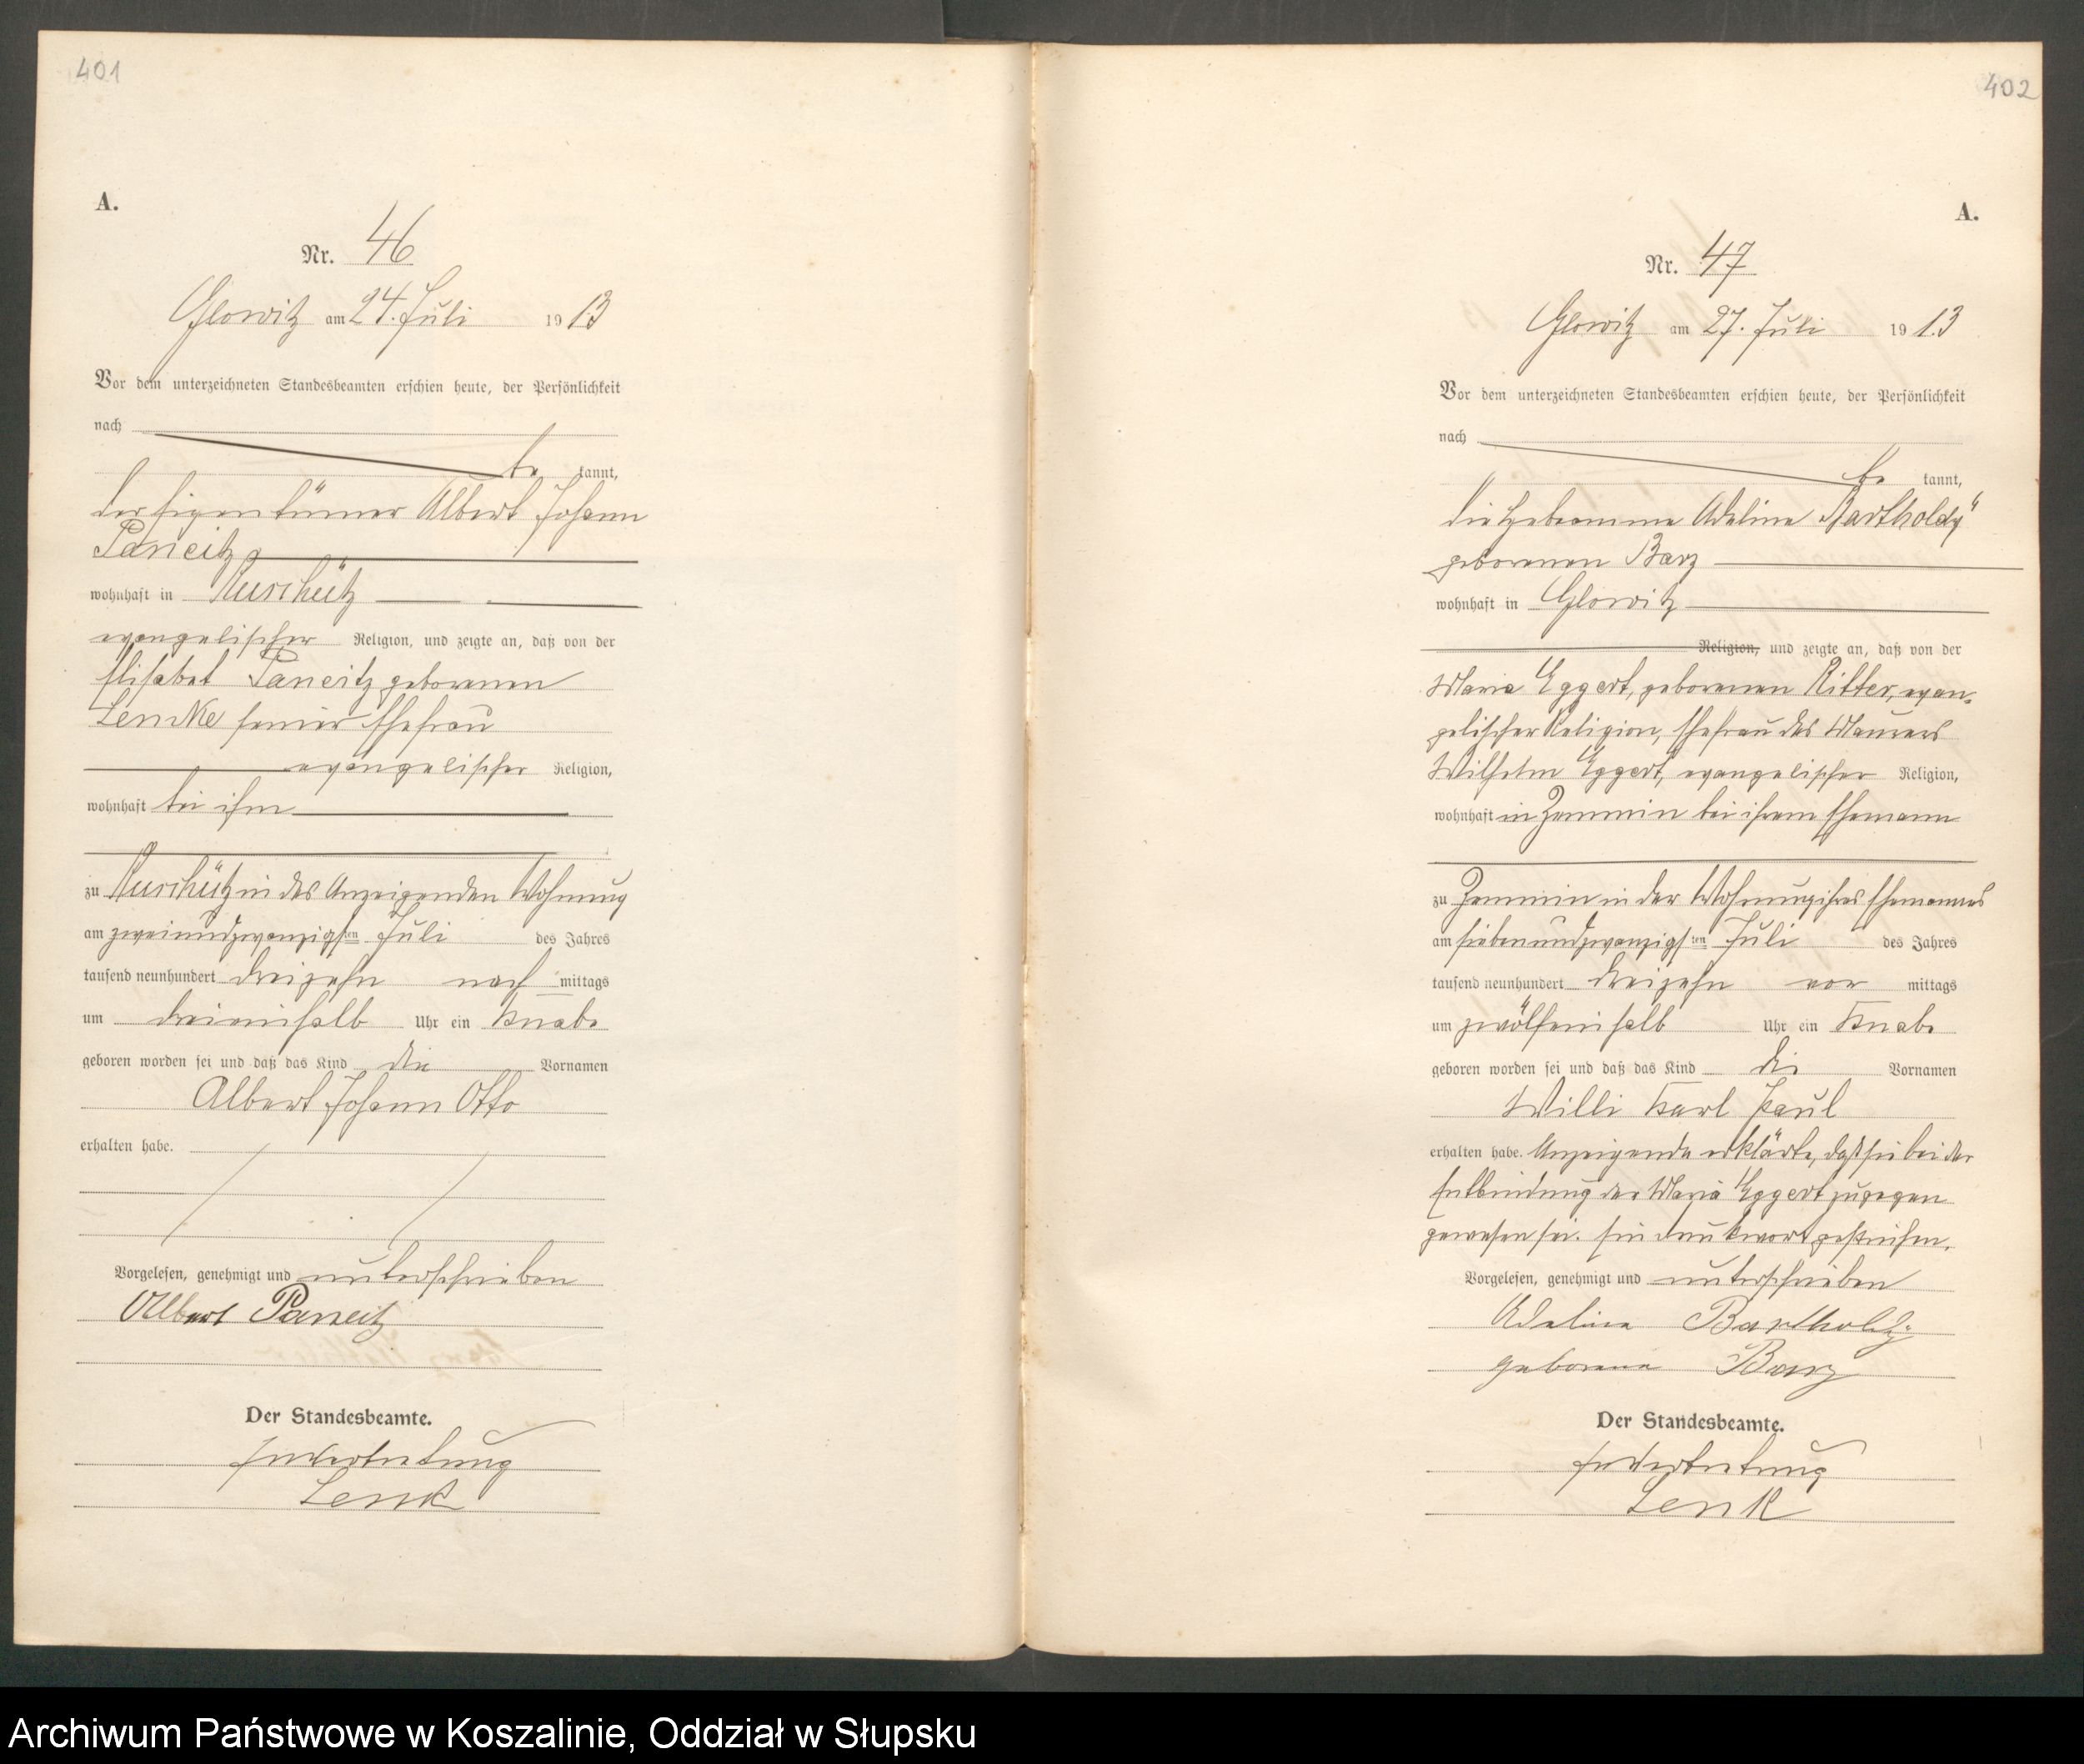 401
A.
Nr. 46
Glowitz am 24. Juli 1913
Vor dem unterzeichneten Standesbeamten erschien heute, der Persönlichkeit
nach
be kannt,
der Eigentümer Albert Johann
Paneitz
wohnhaft in Ruschütz
evangelischer Religion, und zeigte an, daß von der
Elisabet Paneitz geborenen
Lemke seiner Ehefrau
evangelischer Religion,
wohnhaft bei ihm
zu Ruschütz in des Anzeigenden Wohnung
am zweiundzwanzigsten Juli des Jahres
tausend neunhundert dreizehn nach mittags
um dreieinhalb Uhr ein Knabe
geboren worden sei und daß das Kind die Vornamen
Albert Johann Otto
erhalten habe.
Vorgelesen, genehmigt und unterschrieben
Albert Paneitz
Der Standesbeamte.
In Vertretung
Lenk
402
A.
Nr. 47
Glowitz am 27. Juli 1913
Vor dem unterzeichneten Standesbeamten erschien heute, der Persönlichkeit
nach
be kannt,
die Hebamme Adeline Bartholdy
geborenen Barz
wohnhaft in Glowitz
Religion, und zeigte an, daß von der
Maria Eggert, geborenen Ritter, evan-
gelischer Religion, Ehefrau des Maurers
Wilhelm Eggert, evangelischer Religion,
wohnhaft in Zemmin bei ihrem Ehemann
zu Zemmin in der Wohnung ihres Ehemannes
am siebenundzwanzigsten Juli des Jahres
tausend neunhundert dreizehn vor mittags
um zwölfeinhalb Uhr ein Knabe
geboren worden sei und daß das Kind die Vornamen
Willi Karl Paul
erhalten habe. Anzeigende erklärte, daß sie bei der
Entbindung der Maria Eggert zugegen
gewesen sei. Ein Druckwort gestrichen.
Vorgelesen, genehmigt und unterschrieben
Adeline Bartholdy
geborene Barz
Der Standesbeamte.
In Vertretung
Lenk
Archiwum Państwowe w Koszalinie, Oddział w Słupsku